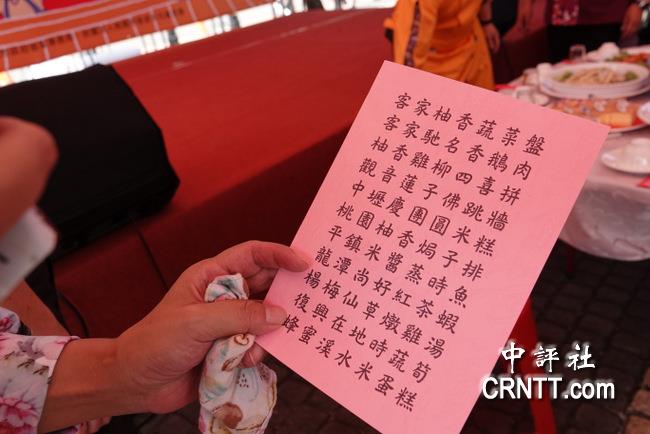 客家柚香蔬菜盤
客家馳名香鵝肉
柚香雞柳四喜拼
觀音蓮子佛跳牆
中壢慶團圓米糕
桃園柚香焗子排
平鎮米醬蒸時魚
龍潭尚好紅茶蝦
楊梅仙草燉雞湯
復興在地時蔬筍
蜂蜜溪水米蛋糕
中評社
CRNTT.com